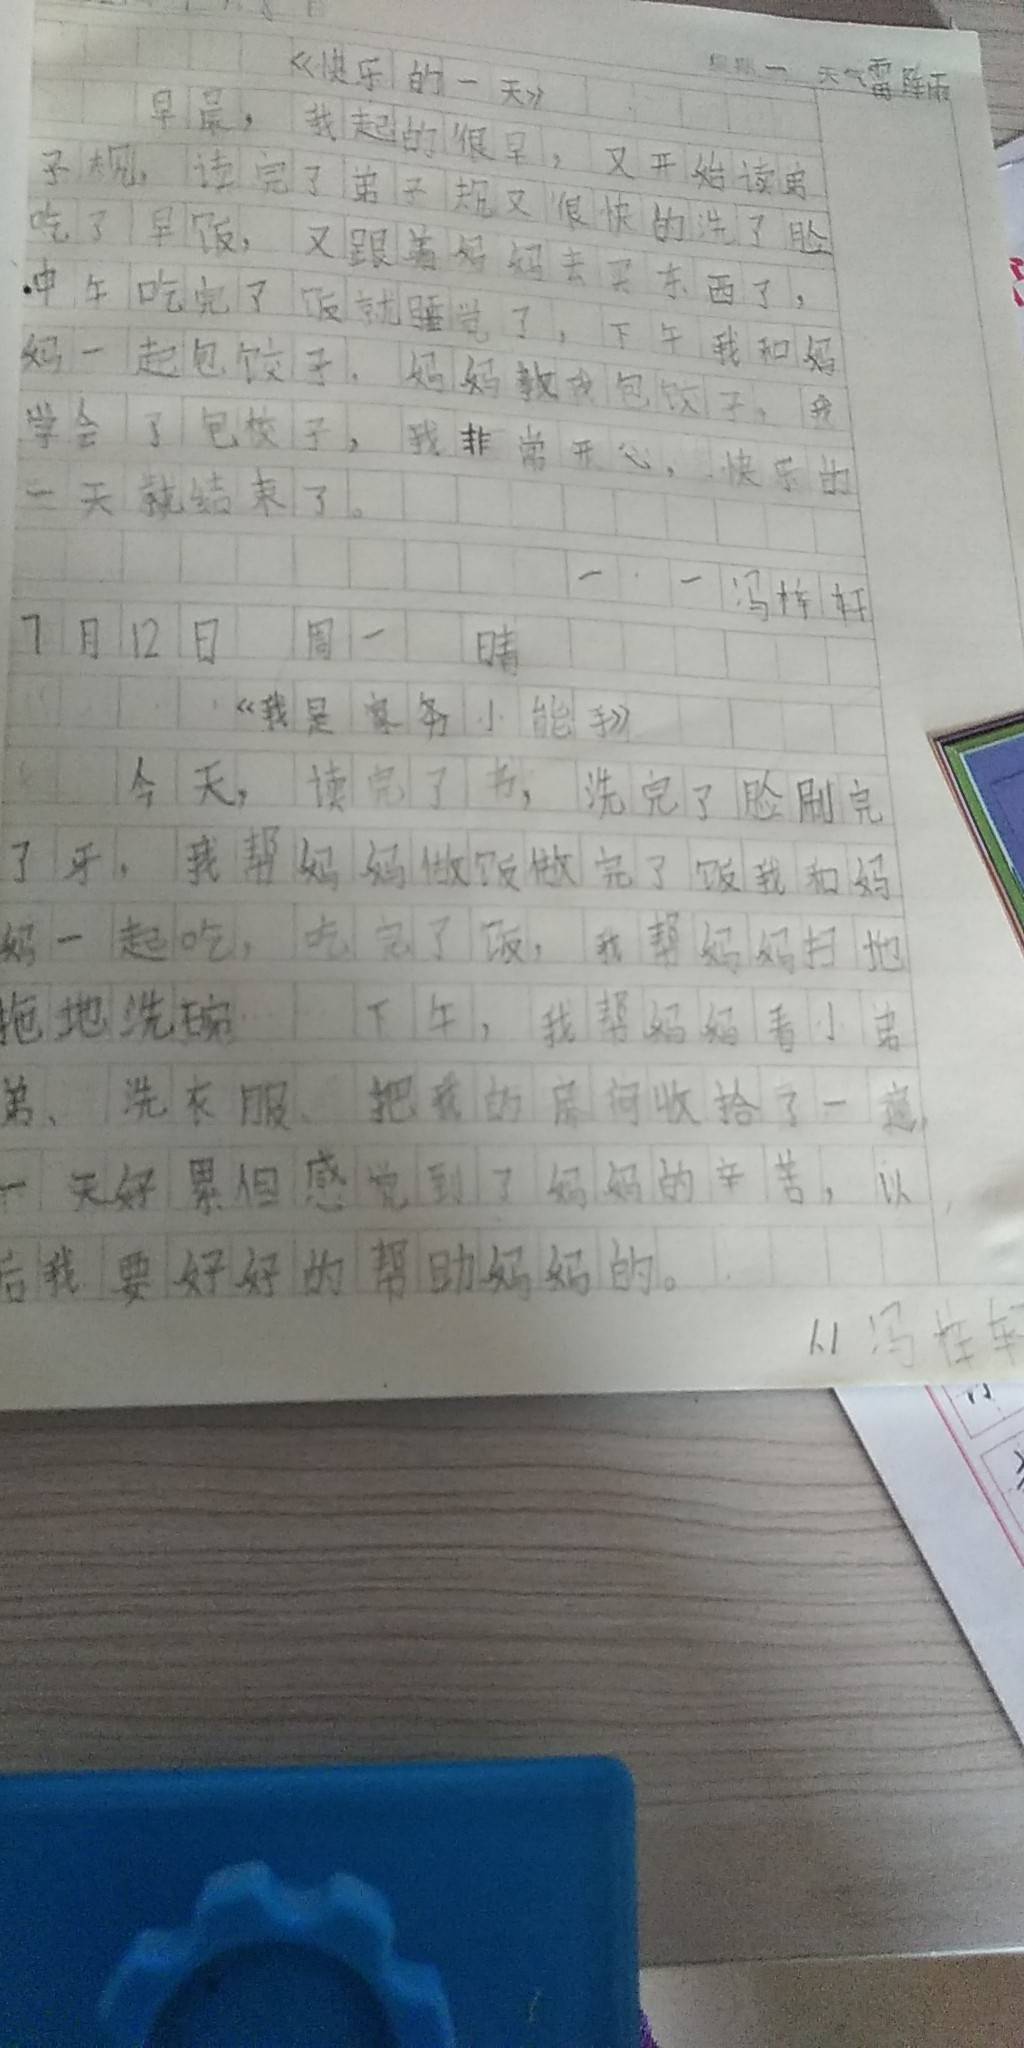 星期一 天气雷阵雨
《快乐的一天》
早晨，我起的很早，又开始读弟
子规，读完了弟子规又很快的洗了脸
吃了早饭，又跟着妈妈去买东西了，
中午吃完了饭就睡觉了，下午我和妈
妈一起包饺子，妈妈教我包饺子，我
学会了包饺子，我非常开心，快乐的
一天就结束了。
一·一冯梓轩
7月12日 周一 晴
《我是家务小能手》
今天，读完了书，洗完了脸刷完
了牙，我帮妈妈做饭做完了饭我和妈
妈一起吃，吃完了饭，我帮妈妈扫地
拖地洗碗 下午，我帮妈妈看小弟
弟、洗衣服、把我的房间收拾了一遍，
一天好累但感觉到了妈妈的辛苦，以
后我要好好的帮助妈妈的。
1.1 冯梓轩